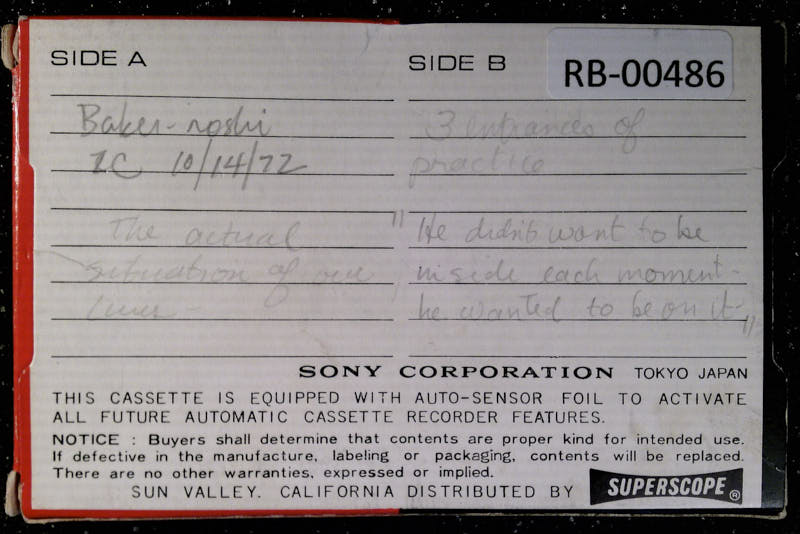 SIDE A
Baker-roshi
ZC 10/14/72
The actual
situation of our
lives -
SIDE B
RB-00486
3 entrances of
practice
"He didn't want to be
inside each moment -
he wanted to be on it-"
SONY CORPORATION TOKYO JAPAN
THIS CASSETTE IS EQUIPPED WITH AUTO-SENSOR FOIL TO ACTIVATE
ALL FUTURE AUTOMATIC CASSETTE RECORDER FEATURES.
NOTICE : Buyers shall determine that contents are proper kind for intended use.
If defective in the manufacture, labeling or packaging, contents will be replaced.
There are no other warranties, expressed or implied.
SUN VALLEY. CALIFORNIA DISTRIBUTED BY SUPERSCOPE®